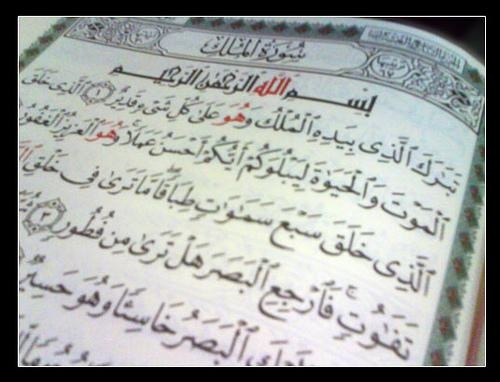 سُورَةُ المُلكِ
بِسْمِ اللَّهِ الرَّحْمَٰنِ الرَّحِيمِ
تَبَٰرَكَ ٱلَّذِى بِيَدِهِ ٱلْمُلْكُ وَهُوَ عَلَىٰ كُلِّ شَىْءٍ قَدِيرٌ ۝١ ٱلَّذِى خَلَقَ
ٱلْمَوْتَ وَٱلْحَيَوٰةَ لِيَبْلُوَكُمْ أَيُّكُمْ أَحْسَنُ عَمَلًا وَهُوَ ٱلْعَزِيزُ ٱلْغَفُورُ
ٱلَّذِى خَلَقَ سَبْعَ سَمَٰوَٰتٍ طِبَاقًا مَّا تَرَىٰ فِى خَلْقِ
تَفَٰوُتٍ فَٱرْجِعِ ٱلْبَصَرَ هَلْ تَرَىٰ مِن فُطُورٍ ۝٣
ٱلْبَصَرُ خَاسِئًا وَهُوَ حَسِيرٌ